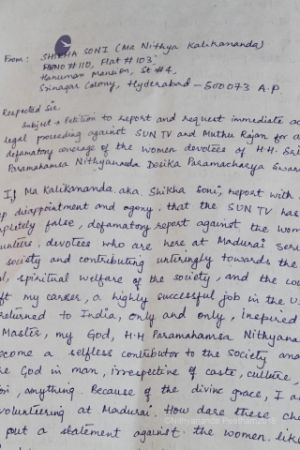 From: SHIKHA SONI (Ma Nithya Kalikananda)
#110, Flat #103,
Hanuman Mansion, St #4,
Srinagar Colony, Hyderabad - 500073 A.P
Respected Sir,
Subject: Petition to report and request immediate ac
legal proceeding against SUN TV and Muthu Rajan for c
defamatory coverage of the women devotees of H.H. Sri
Paramahamsa Nithyananda Desika Paramacharya Swam
I, Ma Kalikananda aka Shikha Soni, report with
ep disappointment and agony, that the SUN TV has
pletely false, defamatory report against the wom
unteer, devotees who are here at Madurai serv
society and contributing untiringly towards the
l, spiritual welfare of the society, and the cou
ft my career, a highly successful job in the U.
returned to India, only and only, inspired
Master, my God, H.H Paramahamsa Nithyana
ecome a selfless contributor to the society and
he God in man, irrespective of caste, culture,
anything. Because of the divine grace, I a
volunteering at Madurai. How dare these cha
put a statement against the women, like